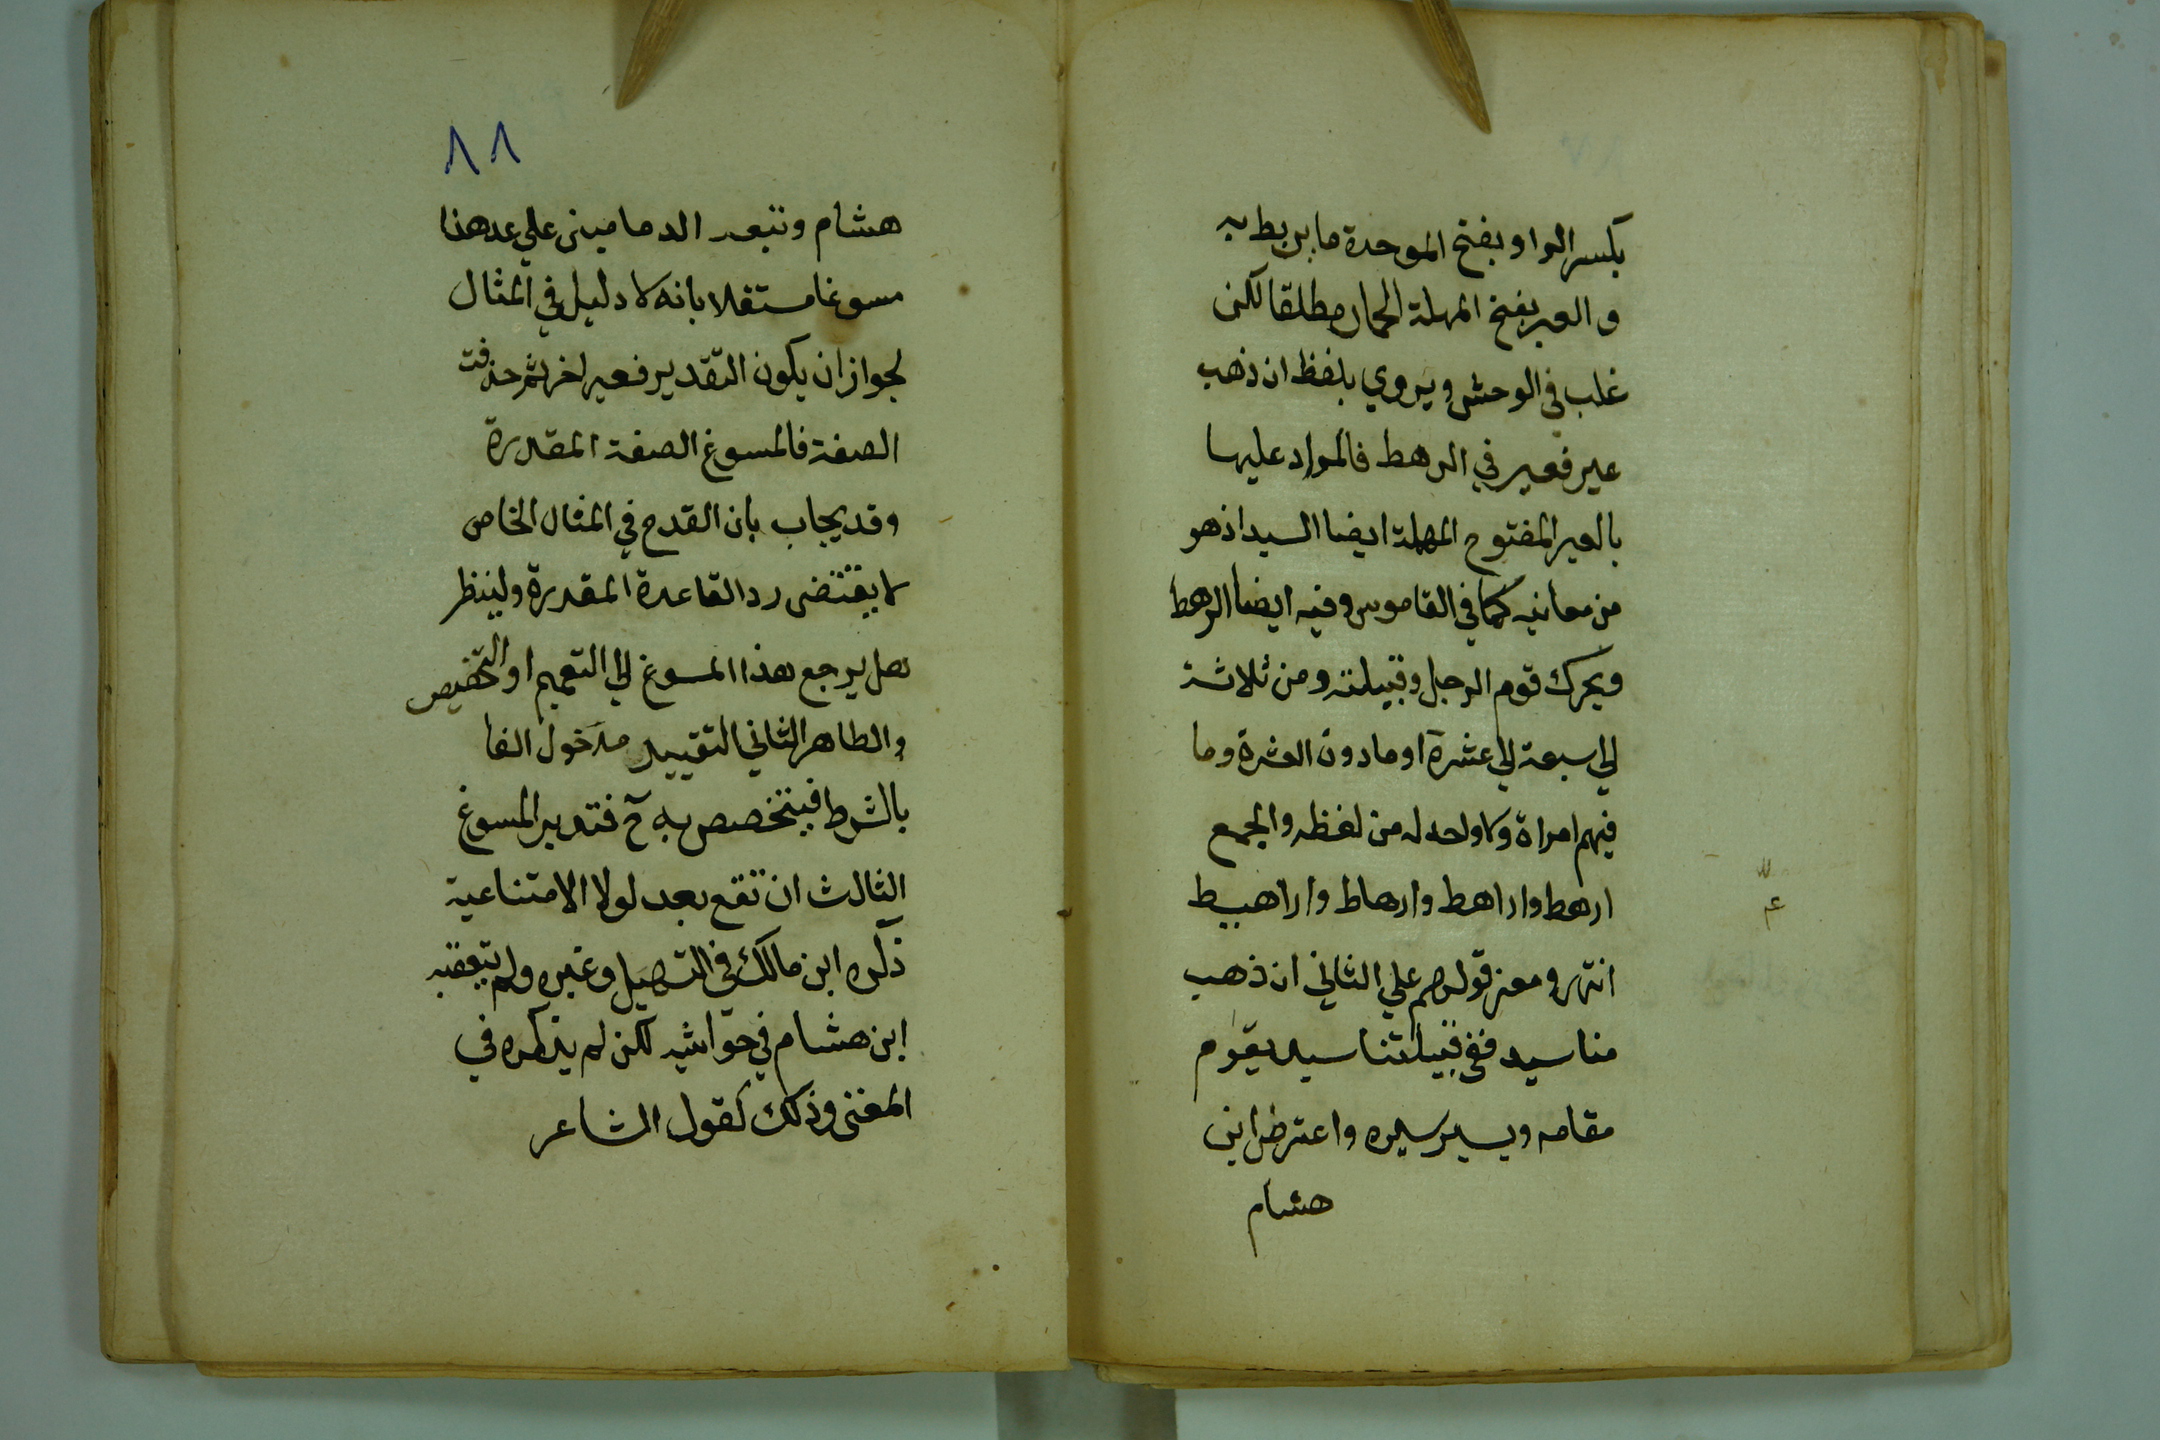 بكسر الراو بفتح الموحدة ما يربط به
والعير بفتح المهلة الحمار مطلقا لكن
غلب في الوحش ويروي بلفظ ان ذهب
عير فعير في الرهط فالمراد عليها
بالعير المفتوح المهملة ايضا السيد اذ هو
من معانيه كما في القاموس وفيه ايضا الرهط
ويحرك قوم الرجل وقبيلته ومن ثلاثة
الي سبعة الي عشرة او مادون العشرة وما
فيهم امراة ولا واحد له من لفظه والجمع
ارهط واراهط وارهاط واراهيط
انتهى ومعنى قولهم علي الثاني ان ذهب
منا سيد ففي قبيلتنا سيد يقوم
مقامه ويسير سيره واعترض ابن
هشام
٨٨
هشام وتبعه الدماميني علي عد هذا
مسوغا مستقلا بانه لا دليل في المثال
لجواز ان يكون التقدير فعير اخر ثم حذفت
الصفة فالمسوغ الصفة المقدرة
وقد يجاب بان القدح في المثال الخاص
لا يقتضى رد القاعدة المقدرة ولينظر
هل يرجع هذا المسوغ الي التعميم او التخصيص
والظاهر الثاني لتقييد مدخول الفا
بالشرط فيتخصص به ح فتدبر المسوغ
الثالث ان تقع بعد لولا الامتناعية
ذكره ابن مالك في التسهيل وغيره ولم يتعقبه
ابن هشام في حواشيه لكن لم يذكره في
المغنى وذلك كقول الشاعر